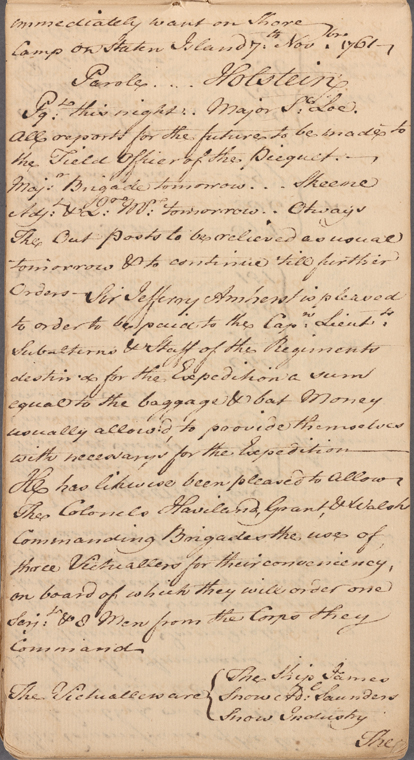 immediately want on Shore
Camp on Staten Island 7th Novbre 1761
Parole .... Holstein
Pqt this night .. Major
All reports for the future to be made to
the Field Officer of the Picquet
Majr Brigade tomorrow ... Skeene
Adjt & Qr Mr tomorrow .. Otways
The Out posts to be relieved as usual
tomorrow & to continue 'till further
Orders - Sir Jefferry Amherst is pleased
to order to be paid to the Capns Lieutts
Subalterns & Staff of the Regiments
destin'd for the Expedition a sum
equal to the baggage & bat Money
usually allow'd to provide themselves
with necessarys for the Expedition
He has likewise been pleased to allow
The Colonels Haviland, Grant, & Walsh
Commanding Brigades the use of
those Victuallers for their conveniency,
on board of which they will order one
Serjt & 8 Men from the Corps they
Command
The Victuallers are { The Ship James
Snow Saunders
Snow Industry
The